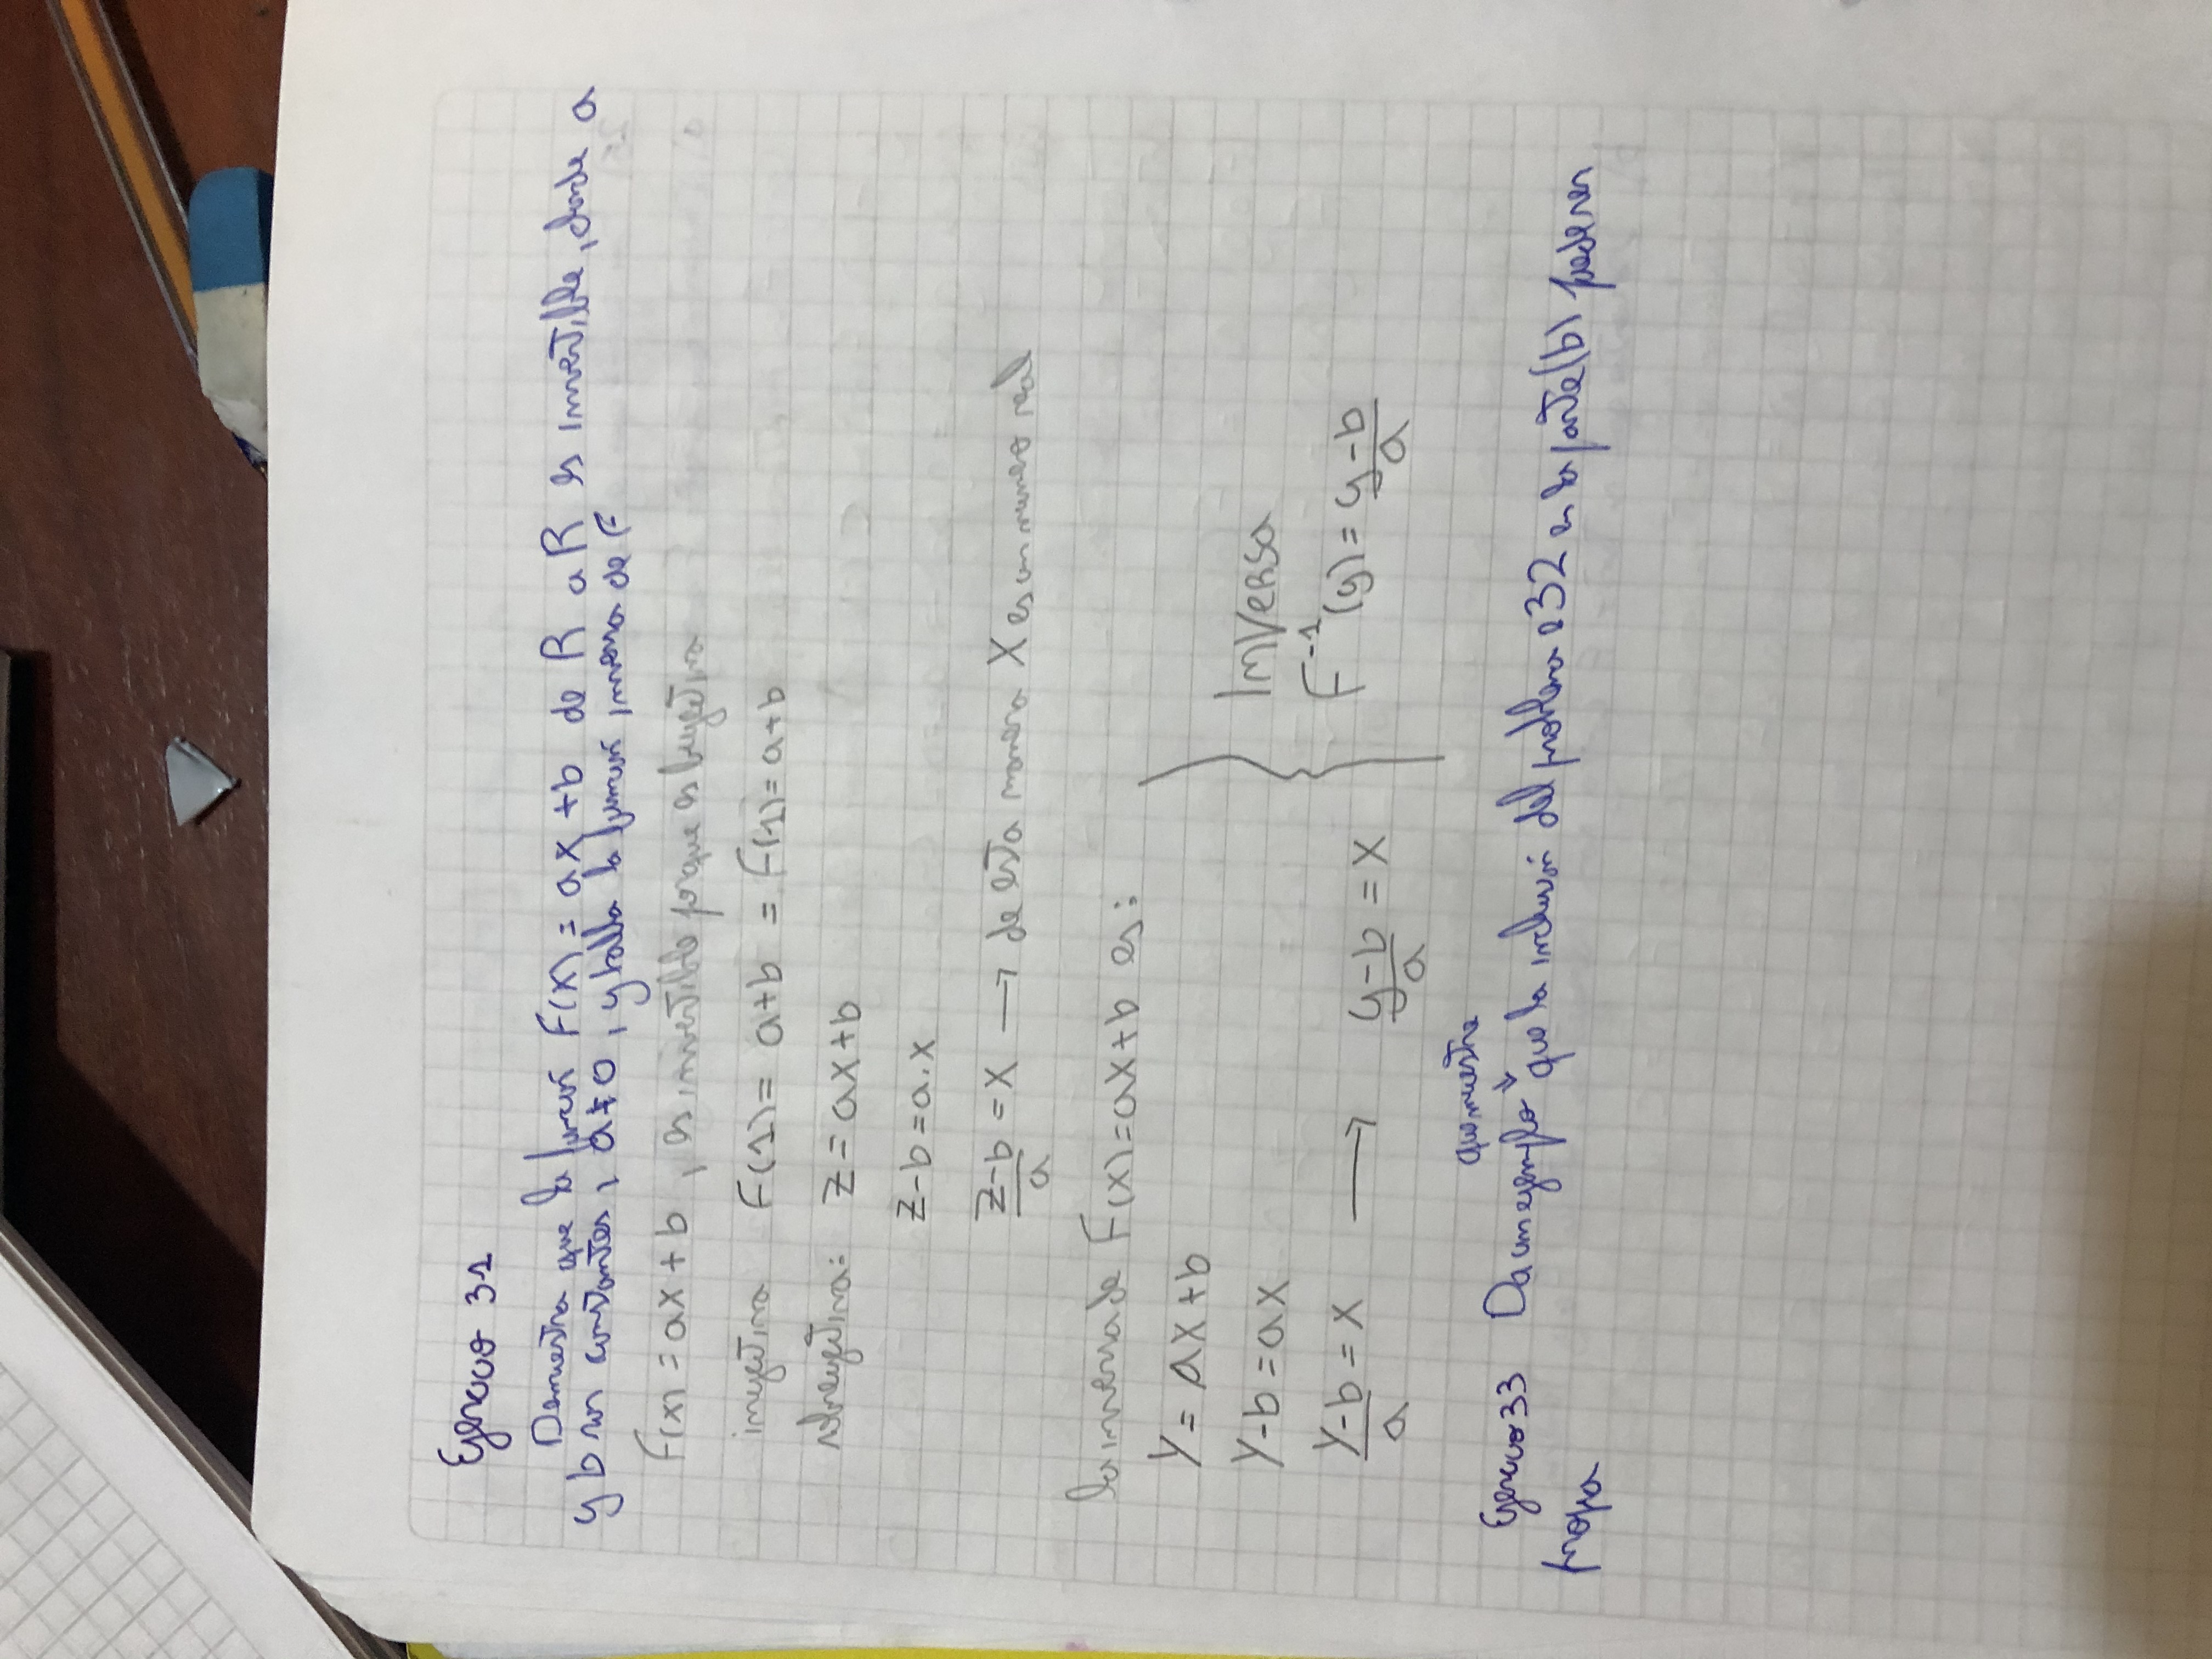 Ejercicio 31
Demuestra que la función F(x) = ax + b de R a R es invertible, donde a
y b son constantes, a ≠ 0, y halla la función inversa de F
F(x) = ax + b, es invertible porque es biyectiva
inyectiva F(1) = a+b = F(1) = a+b
sobreyectiva: z = ax+b
z-b = a.x
z-b/a = x → de esta manera X es un numero real
la inversa de F(x) = ax+b es:
Y = ax+b
Y-b = ax
Y-b/a = x → y-b/a = x
Inversa
F⁻¹(y) = y-b/a
que muestra
Ejercicio 33 Da un ejemplo ↓ que la inclusión del problema 32 en la parte (b) puede ser
propia